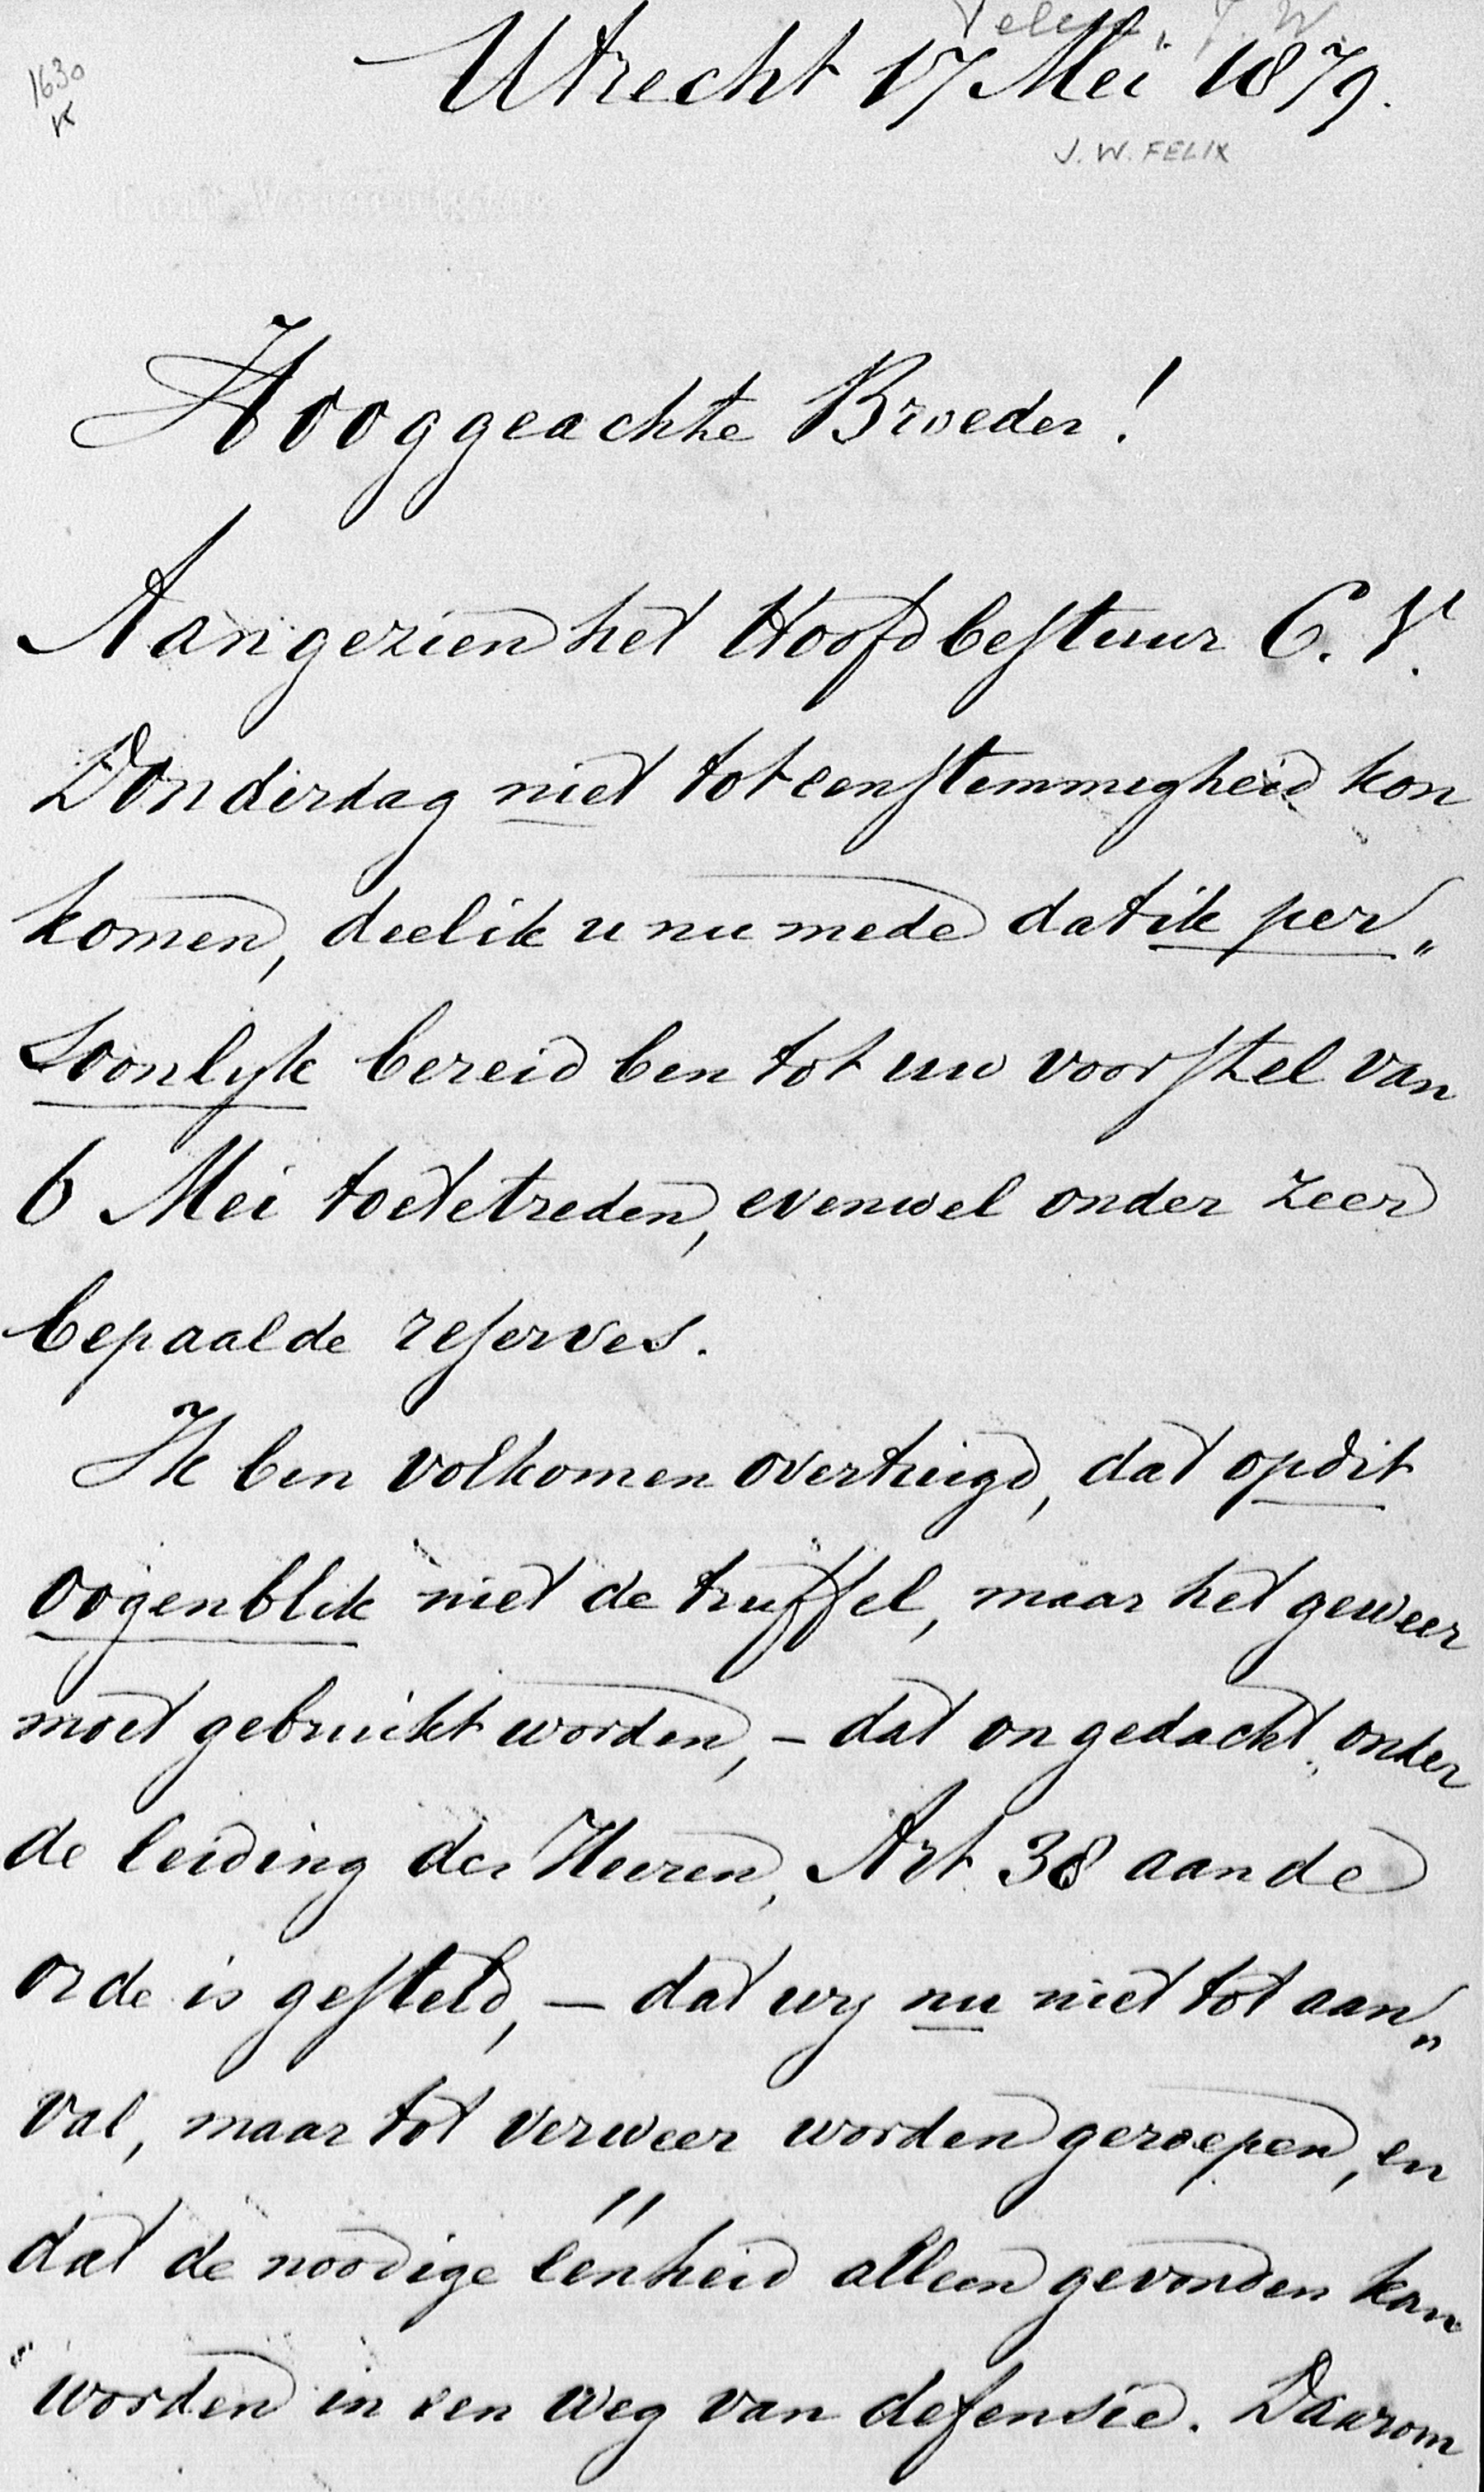 1630
Utrecht 17 Mei 1879.
J. W. FELIX
Hooggeachte Broeder!
Aangezien het Hoofdbestuur C. V.
Donderdag niet tot eenstemmigheid kon
komen, deel ik u nu mede dat ik per„
soonlyk bereid ben tot uw voorstel van
6 Mei toetetreden, evenwel onder zeer
bepaalde reserves.
Ik ben volkomen overtuigd, dat op dit
oogenblik niet de truffel, maar het geweer
moet gebruikt worden, – dat ongedacht, onder
de leiding des Heeren, Art 38 aan de
orde is gesteld, – dat wy nu niet tot aan„
val, maar tot verweer worden geroepen, en
dat de noodige éénheid alleen gevonden kan
worden in een weg van defensie. Daarom